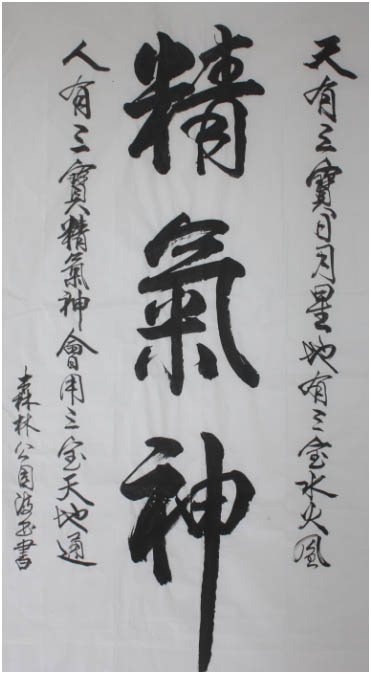 天有三寶日月星地有三宝水火風
精氣神
人有三寶精氣神會用三宝天地通
森林公园 書